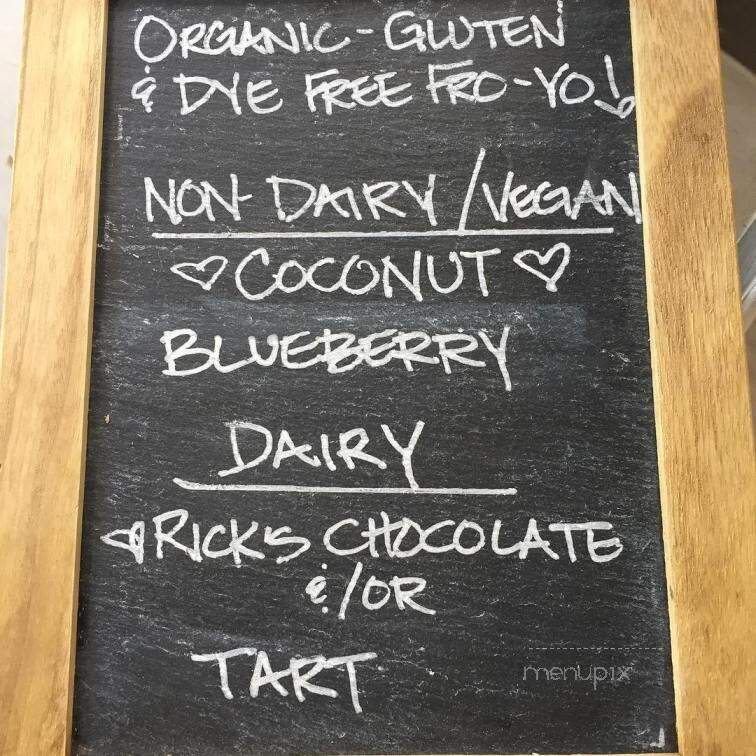 ORGANIC-GLUTEN
& DYE FREE FRO-YO!
NON-DAIRY/VEGAN
♡ COCONUT ♡
BLUEBERRY
DAIRY
RICK'S CHOCOLATE
&/OR
TART
menupix